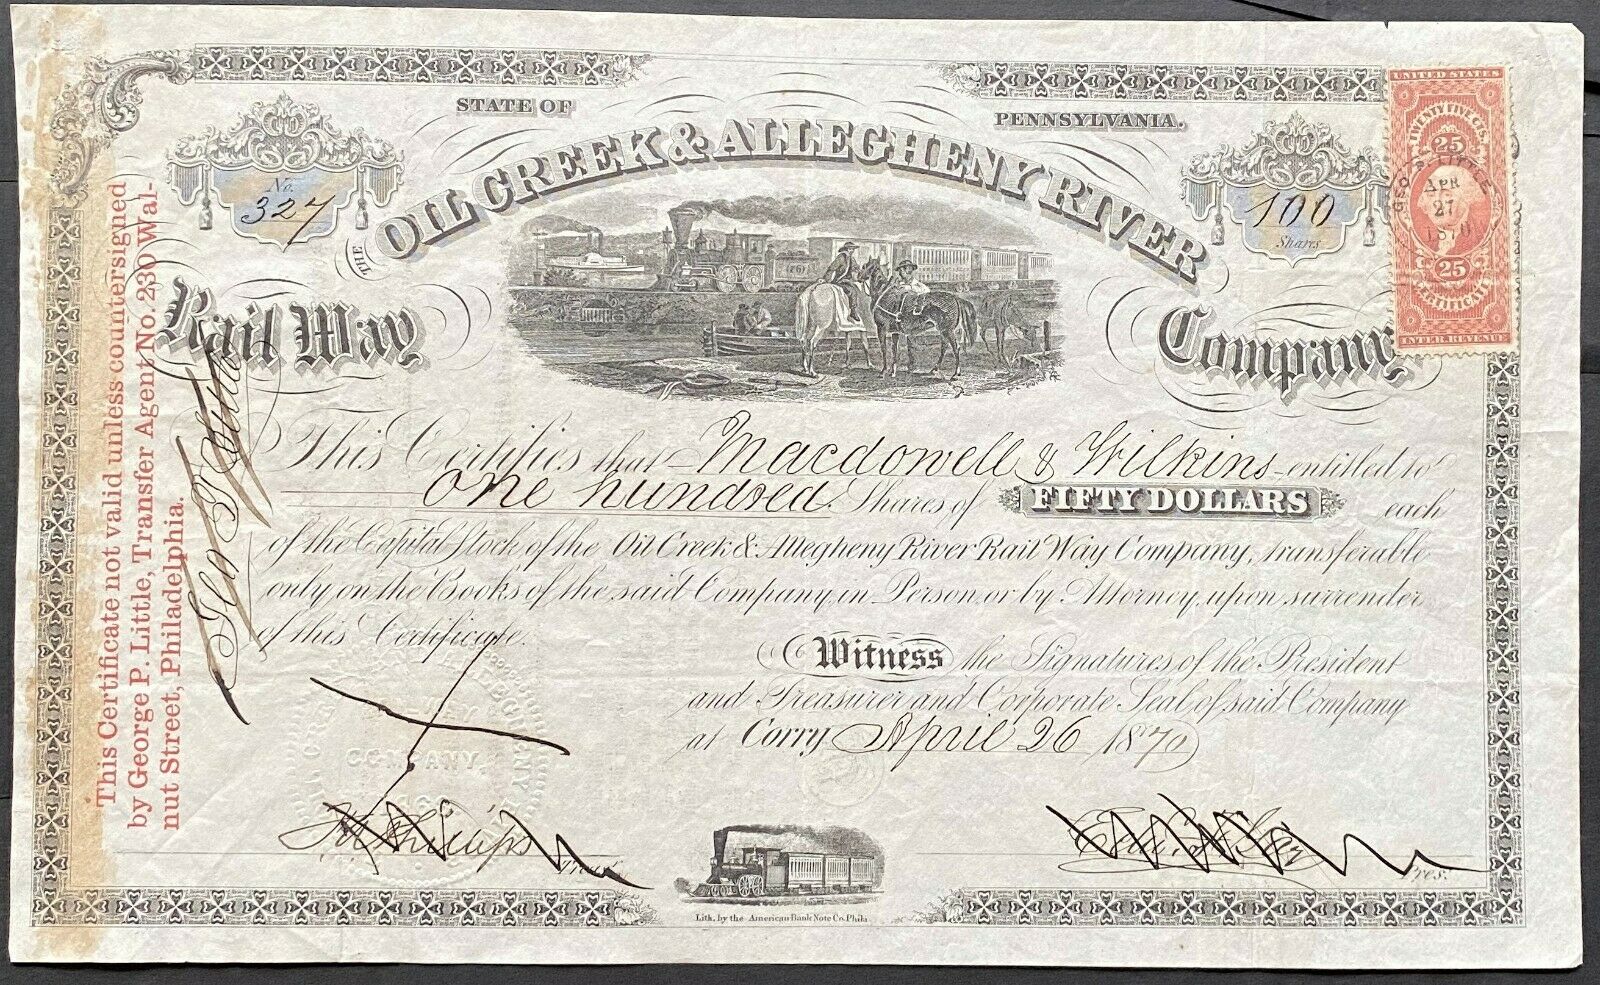 STATE OF PENNSYLVANIA.
No. 327
THE OIL CREEK & ALLEGHENY RIVER
100 Shares
Rail Way Company
UNITED STATES
TWENTY FIVE CTS.
25
GEO. P. LITTLE
APR
27
1870
25
CERTIFICATE
INTER. REVENUE
This Certificate not valid unless countersigned
by George P. Little, Transfer Agent No. 230 Wal-
nut Street, Philadelphia.
Geo P Little
This Certifies that Macdowell & Wilkins entitled to
One hundred Shares of FIFTY DOLLARS each
of the Capital Stock of the Oil Creek & Allegheny River Rail Way Company, transferable
only on the Books of the said Company, in Person, or by Attorney, upon surrender
of this Certificate.
Witness the Signatures of the President
and Treasurer and Corporate Seal of said Company
at Corry April 26 1870
COMPANY
Phillips Treas.
Pres.
Lith. by the American Bank Note Co. Phila.